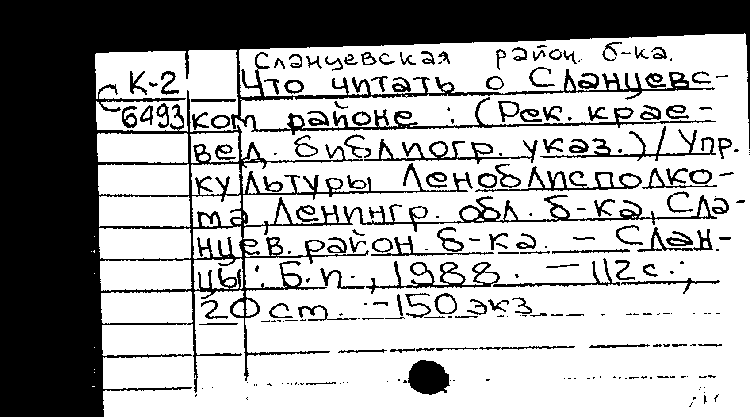 Сланцевская район. б-ка.
К-2 Что читать о Сланцевс-
С 6493 ком районе : (Рек. крае-
вед. библиогр. указ.) / Упр.
культуры Леноблисполко-
ма, Ленингр. обл. б-ка, Сла-
нцев. район. б-ка. – Слан-
цы : Б.п., 1988. – 112 с.;
20 см. – 150 экз.